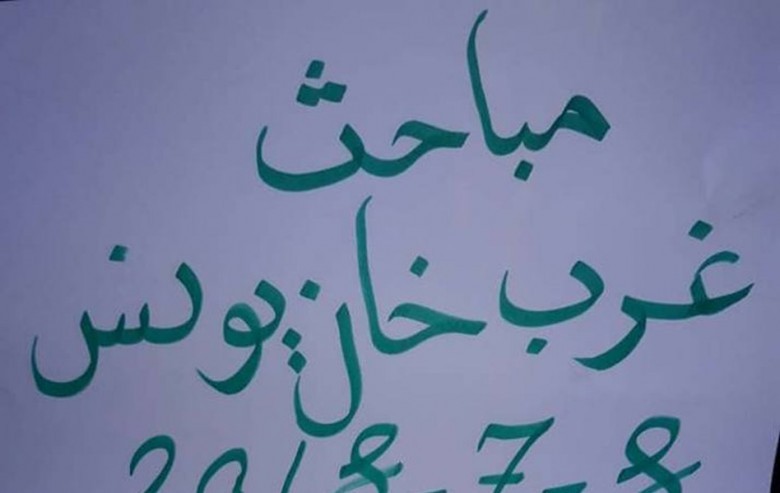 مباحث
غرب خان يونس
2018-7-8